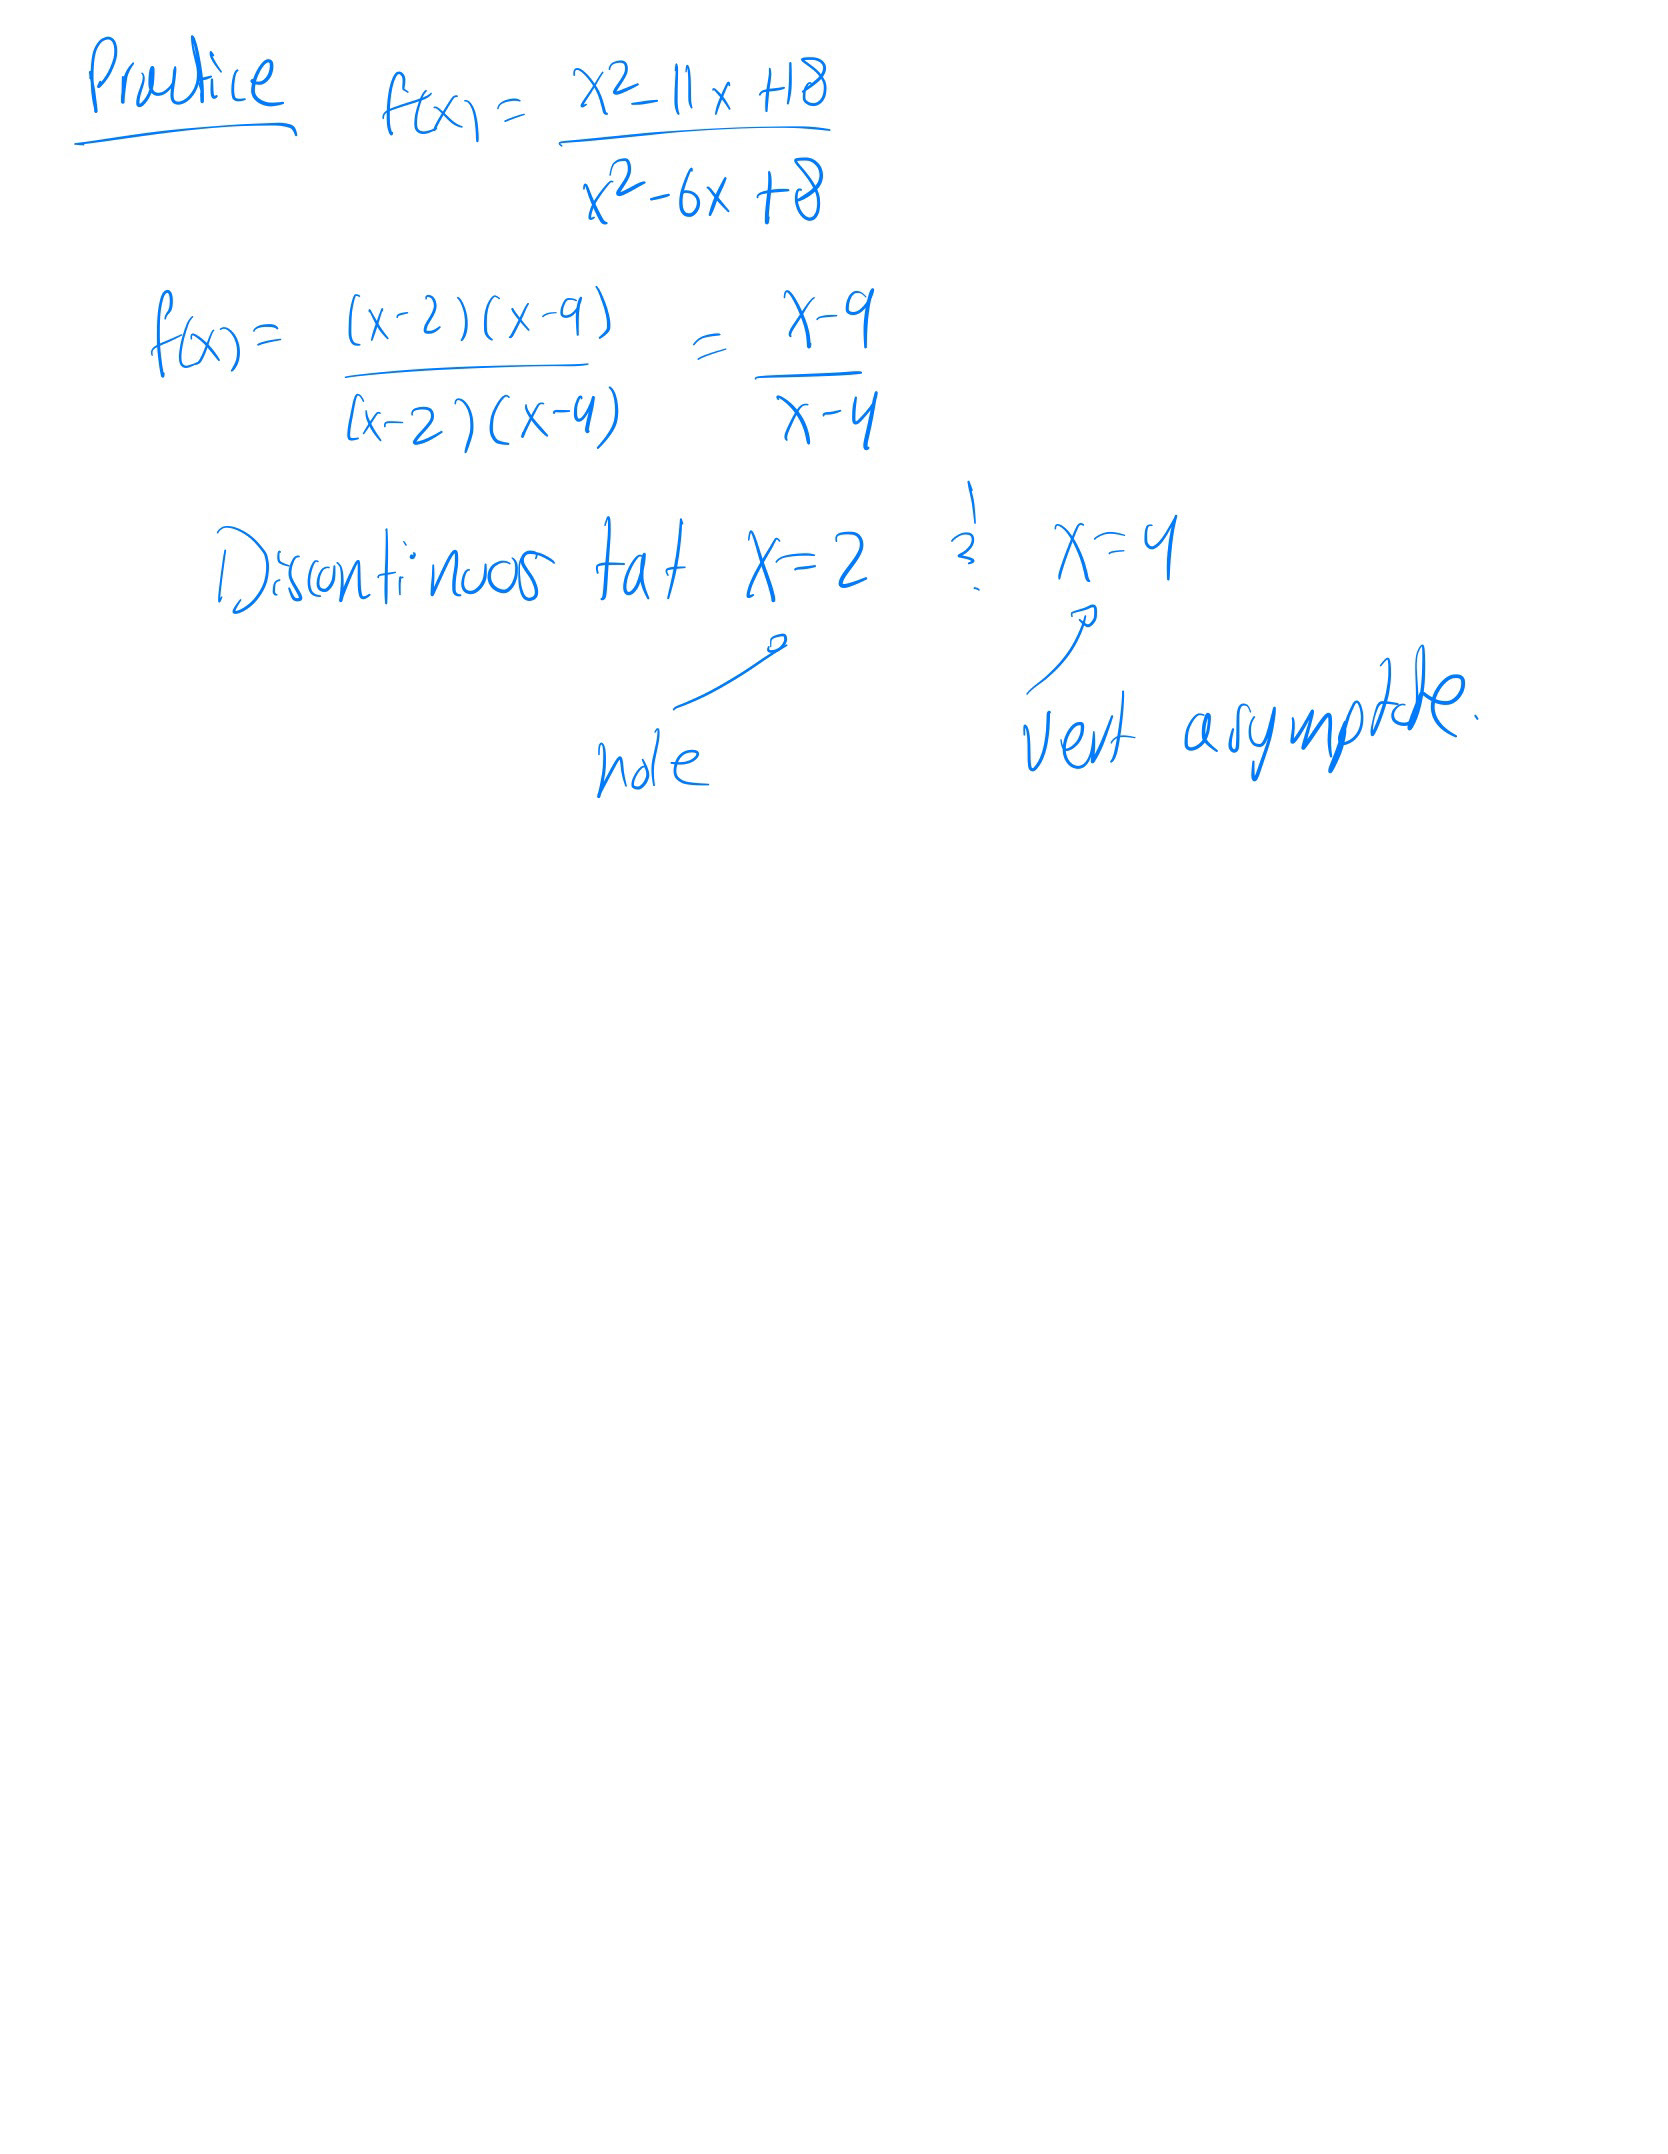 Practice f(x) = (x² - 11x + 18) / (x² - 6x + 8)
f(x) = ((x-2)(x-9)) / ((x-2)(x-4)) = (x-9) / (x-4)
Discontinuos tat x=2 & x=4
hole vert asymptote.